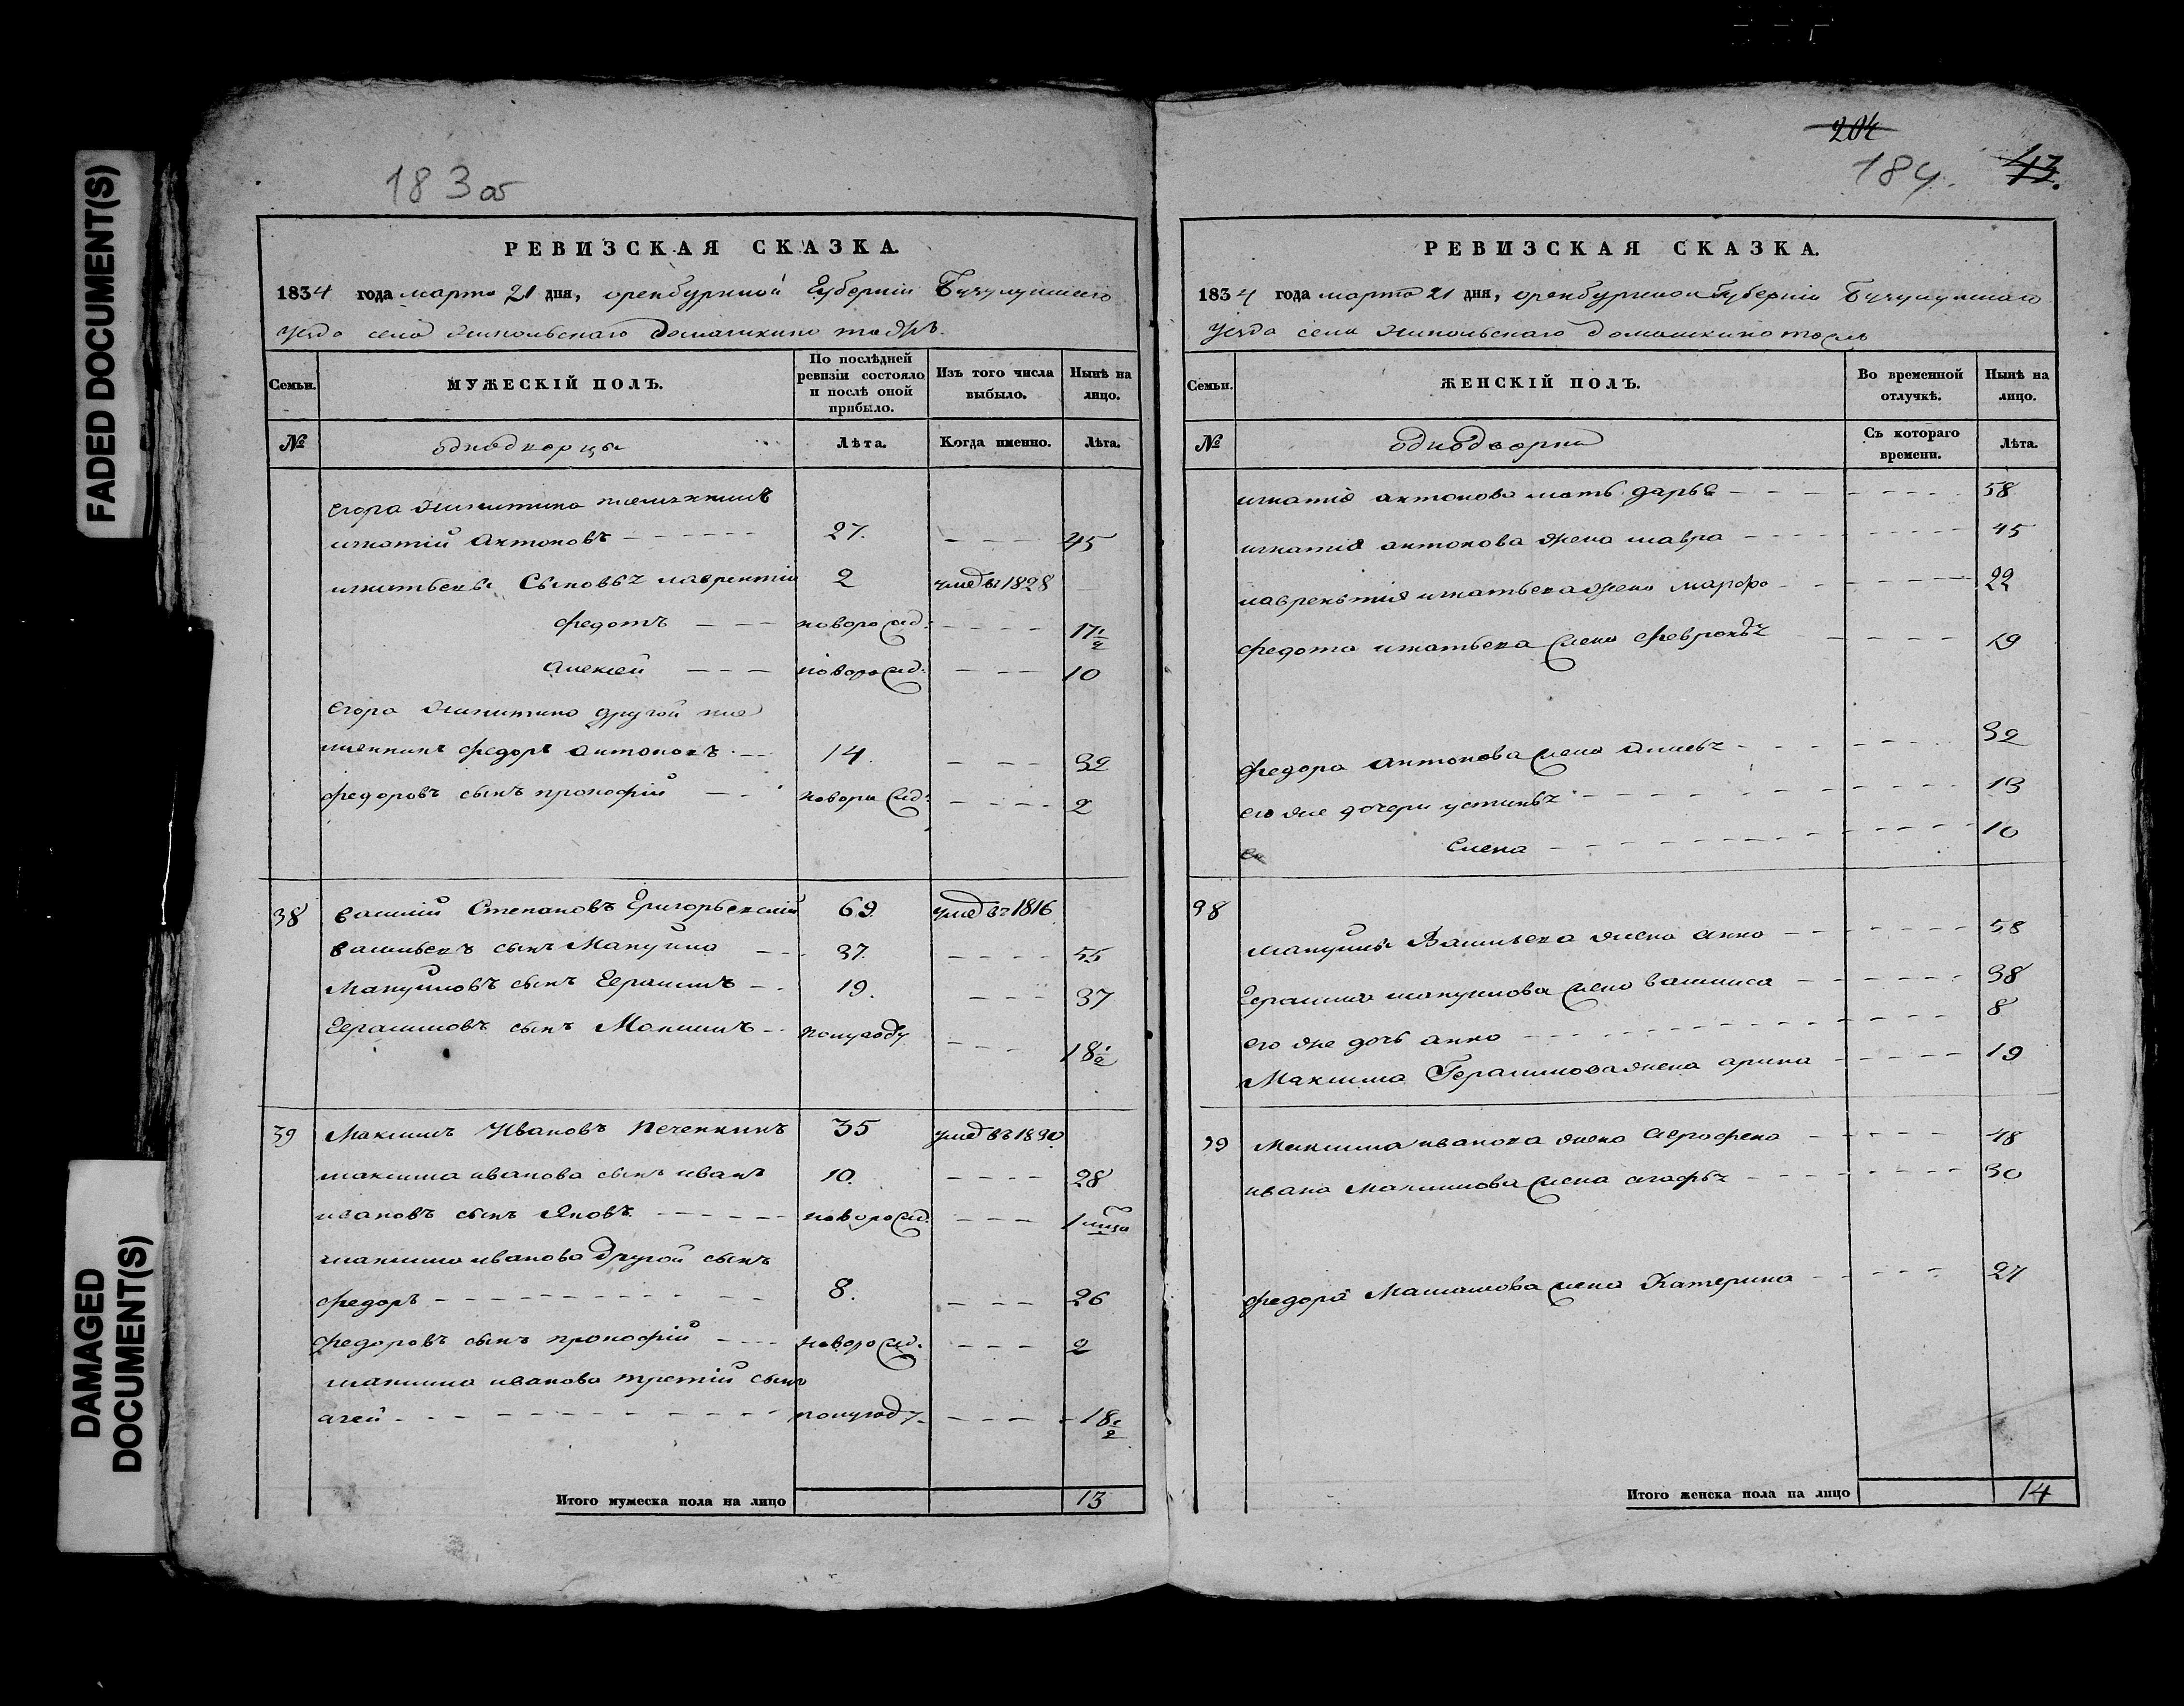 FADED DOCUMENT(S)
DAMAGED DOCUMENT(S)
183 об
РЕВИЗСКАЯ СКАЗКА.
1834 года марта 21 дня, оренбургской Губернiи Бузулукскаго
уезда села домашкино тожъ.
Семьи.
МУЖЕСКIЙ ПОЛЪ.
По послѣдней ревизiи состояло и послѣ оной прибыло.
Изъ того числа выбыло.
Нынѣ на лицо.
№
однодворцы
Лѣта.
Когда именно.
Лѣта.
егора никитина племянникъ
игнатiй антоновъ 27. 45
игнатьевы сыновья лаврентiй 2 умед въ 1828
федотъ новорожд: 17 1/2
алексей новорожд: 10
егора никитина другой пле
мянникъ федоръ антоновъ 14. 32
федоровъ сынъ прокофiй новорожд: 2
38 василiй Степановъ Григорьевскiй 69. умед въ 1816
васильевъ сынъ Мануйла 37. 55
Мануйловъ сынъ Герасимъ 19. 37
Герасимовъ сынъ Максимъ полугоду 18 1/2
39 Максимъ Ивановъ Печенкинъ 35 умед въ 1830
максима иванова сынъ иванъ 10. 28
ивановъ сынъ Яковъ новорожд. 1
максима иванова другой сынъ
федоръ 8. 26
федоровъ сынъ прокофiй новорожд. 2
максима иванова третiй сынъ
агей полугоду 18 1/2
Итого мужеска пола на лицо 13
204
184. 43.
РЕВИЗСКАЯ СКАЗКА.
1834 года марта 21 дня, оренбургской губернiи Бузулукскаго
уезда села домашкино тожъ
Семьи.
ЖЕНСКIЙ ПОЛЪ.
Во временной отлучкѣ.
Нынѣ на лицо.
№
однодворки
Съ котораго времени.
Лѣта.
игнатiя антонова мать дарья 58
игнатiя антонова жена мавра 45
лаврентiя игнатьева жена марфа 22
федота игнатьева жена февронья 19
федора антонова жена 32
его же дочери устинья 13
елена 10
38
мануйлы Васильева жена анна 58
Герасима мануйлова жена василиса 38
его же дочь анна 8
Максима Герасимова жена арина 19
39 Максима иванова жена аграфена 48
ивана Максимова жена агафья 30
федора Максимова жена Катерина 27
Итого женска пола на лицо 14